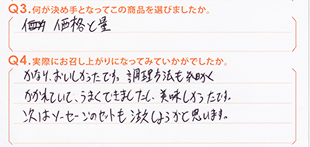 Q3.何が決め手となってこの商品を選びましたか。
価格と量
Q4.実際にお召し上がりになってみていかがでしたか。
かなり、おいしかったです。調理方法も細かく
かかれていて、うまくできましたし、美味しかったです。
次はソーセージのセットも注文しようかと思います。